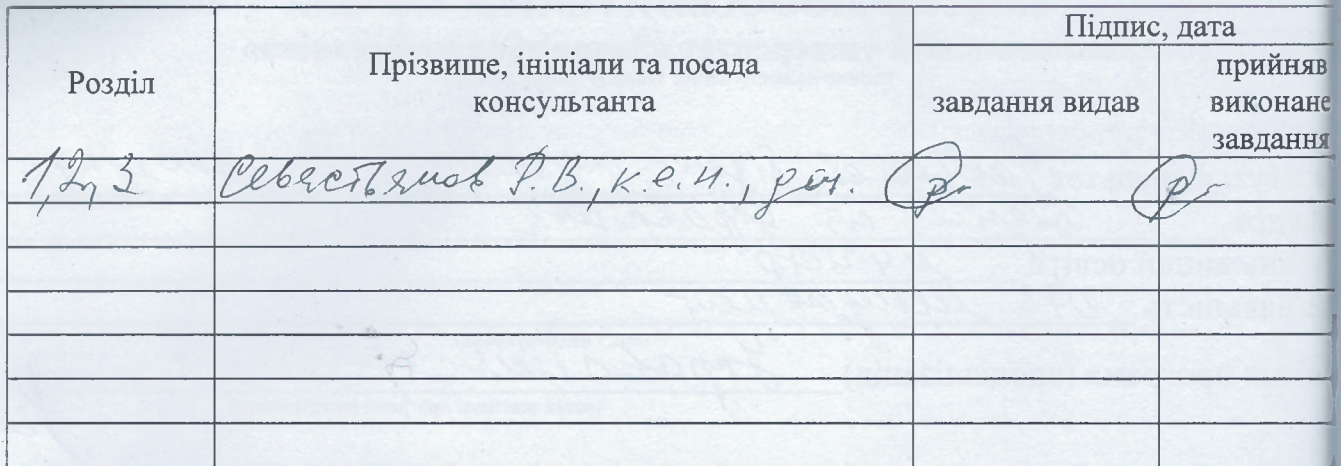 Розділ
Прізвище, ініціали та посада
консультанта
Підпис, дата
завдання видав
прийняв
виконане
завдання
1,2,3 Севастьянов Р.В., к.е.н., доц.